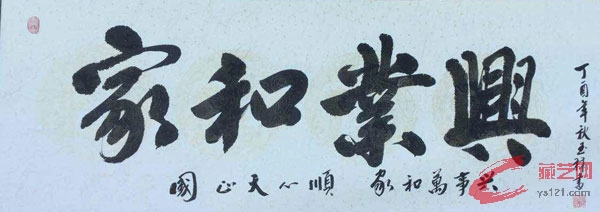 家和業興
國正天心順 家和萬事兴
丁酉年秋玉書
藏艺网
ys121.com